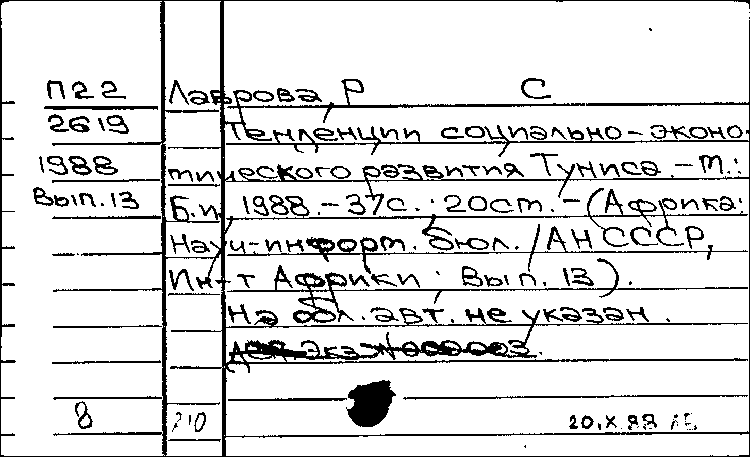 П22 Лаврова, Р С
2619 Тенденции социально-эконо-
1988 мического развития Туниса.-М.:
Вып.13 Б.и, 1988.-37с.; 20см.-(Африка:
Науч-информ. бюл. /АН СССР,
Ин-т Африки; Вып. 13).
На обл. авт. не указан.
Экз №000003.
8 210 20.X.88